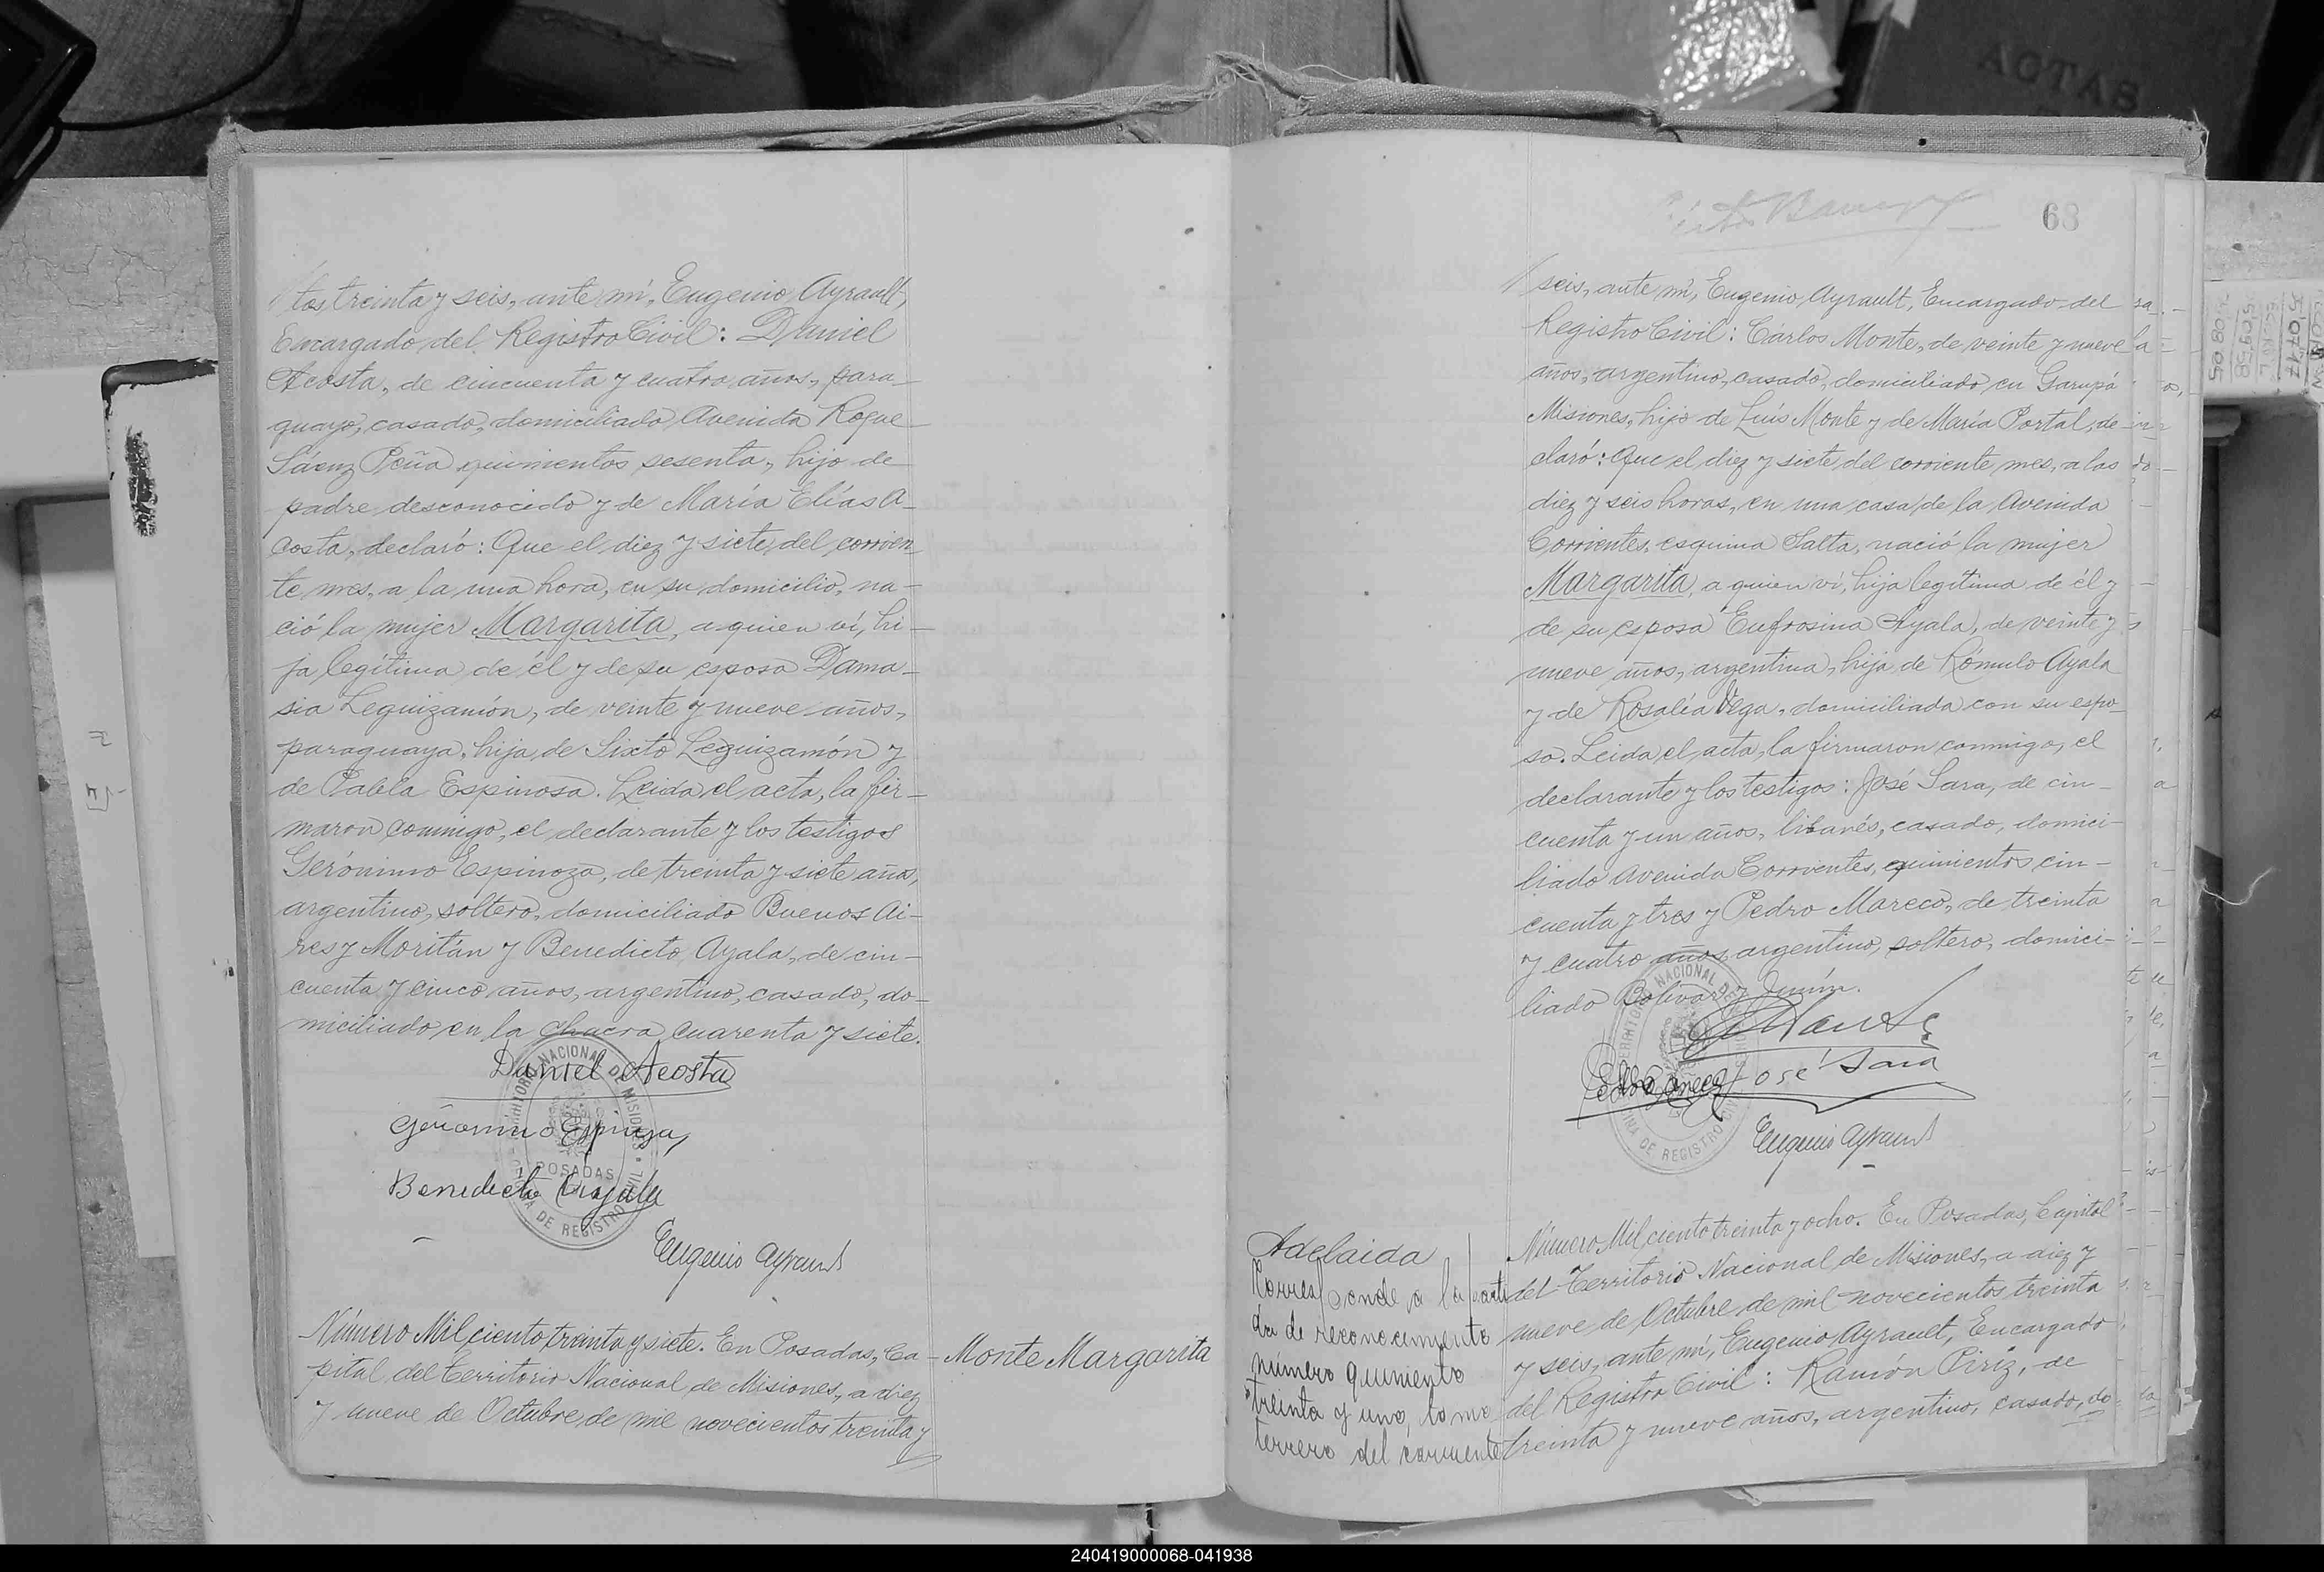 tos treinta y seis, ante mí, Eugenio Ayrault,
Encargado del Registro Civil: Daniel
Acosta, de cincuenta y cuatro años, para-
guayo, casado, domiciliado Avenida Roque
Sáenz Peña quinientos sesenta, hijo de
padre desconocido y de María Elías A-
costa, declaró: Que el diez y siete del corrien
te mes, a la una hora, en su domicilio, na-
ció la mujer Margarita, a quien ví, hi-
ja legítima de él y de su esposa Dama-
sia Leguizamón, de veinte y nueve años,
paraguaya, hija de Sixto Leguizamón y
de Pabla Espinosa. Leida el acta, la fir-
maron conmigo, el declarante y los testigos
Gerónimo Espinoza, de treinta y siete años,
argentino, soltero, domiciliado Buenos Ai-
res y Moritán y Benedicto Ayala, de cin-
cuenta y cinco años, argentino, casado, do-
miciliado en la chacra cuarenta y siete.
Daniel Acosta
Gerónimo Espinoza
Benedicto Ayala
Eugenio Ayrault
TERRITORIO NACIONAL DE MISIONES
POSADAS
OFICINA DE REGISTRO CIVIL
Número Mil ciento treinta y siete. En Posadas, Ca-
pital del Territorio Nacional de Misiones, a diez
y nueve de Octubre de mil novecientos treinta y
Monte Margarita
63
seis, ante mí, Eugenio Ayrault, Encargado del
Registro Civil: Carlos Monte, de veinte y nueve
años, argentino, casado, domiciliado en Garupá
Misiones, hijo de Luís Monte y de María Portal, de-
claró: Que el diez y siete del corriente mes, a las
diez y seis horas, en una casa de la Avenida
Corrientes, esquina Salta, nació la mujer
Margarita, a quien ví, hija legítima de él y
de su esposa Eufrosina Ayala, de veinte y
nueve años, argentina, hija de Rómulo Ayala
y de Rosalía Vega, domiciliada con su espo-
so. Leida el acta, la firmaron conmigo, el
declarante y los testigos: José Sara, de cin-
cuenta y un años, libanés, casado, domici-
liado Avenida Corrientes, quinientos cin-
cuenta y tres y Pedro Mareco, de treinta
y cuatro años, argentino, soltero, domici-
liado Bolivar y Junín.
C Monte
Pedro Mareco José Sara
Eugenio Ayrault
Adelaida
Corresponde a la parti
da de reconocimiento
número quiniento
treinta y uno, tomo
tercero del corriente
Número Mil ciento treinta y ocho. En Posadas, Capital
del Territorio Nacional de Misiones, a diez y
nueve de Octubre de mil novecientos treinta
y seis, ante mí, Eugenio Ayrault, Encargado
del Registro Civil: Ramón Piriz, de
treinta y nueve años, argentino, casado, do-
ACTAS
240419000068-041938